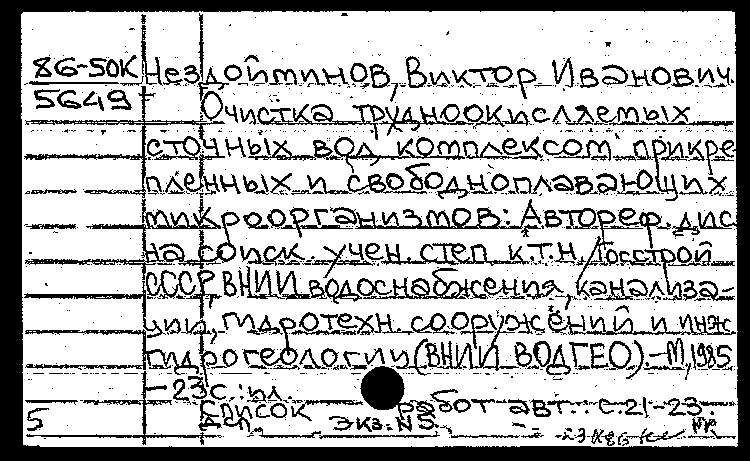 86-50К Нездойминов, Виктор Иванович.
5649 Очистка трудноокисляемых
сточных вод, комплексом прикре
пленных и свободноплавающих
микроорганизмов: Автореф. дис
на соиск. учен. степ к.т.н. /Госстрой
СССР, ВНИИ водоснабжения, канализа-
ции, гидротехн. сооружений и инж
гидрогеологии (ВНИИ ВОДГЕО).-М, 1985
-23с.: ил.
Список работ авт.: с.21-23.
5 Дсп. Экз.N5